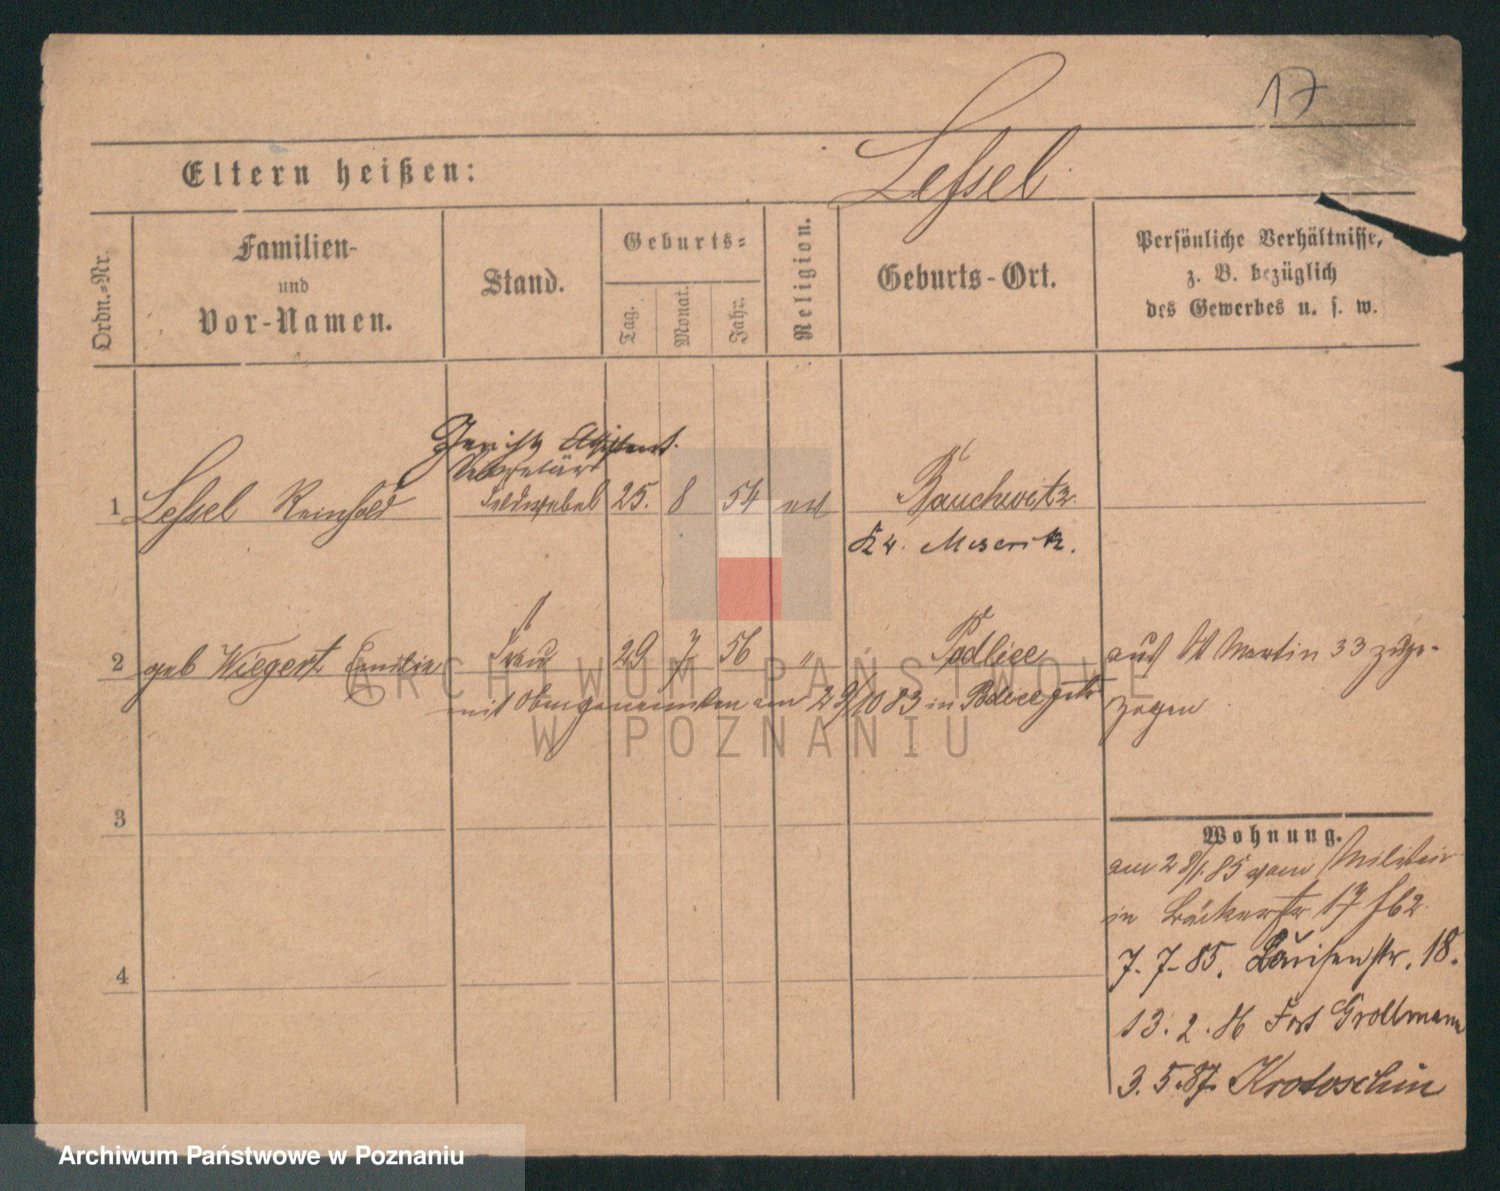 17
Eltern heißen:
Lessel
Ordn.-Nr.
Familien-
und
Vor-Namen.
Stand.
Geburts-
Tag.
Monat.
Jahr.
Religion.
Geburts-Ort.
Persönliche Verhältnisse,
z. B. bezüglich
des Gewerbes u. s. w.
Assistent.
Sekretär
1 Lessel Reinhold Feldwebel 25. 8 54 Bauchwitz
Kr. Meseritz.
2 geb Wiegert Emilie Frau 29 7 56 " Podlice auch St Martin 33 zuge-
mit Obengenannten am 29/10 83 in zogen
3
4
Wohnung.
am 28/1. 85 vom Militär
in Bäckerstr 17
7. 7. 85. Louisenstr. 18.
13. 2. 86 Fort Grollmann
3. 5. 87 Krotoschin
ARCHIWUM PAŃSTWOWE
W POZNANIU
Archiwum Państwowe w Poznaniu